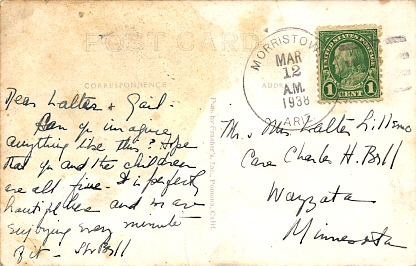 POST CARD
CORRESPONDENCE
ADD
MORRISTOW
MAR
12
A.M.
1938
ARIZ
UNITED STATES POSTAGE
1 CENT 1
Dear Walter & Gail -
Can you imagine
anything like this? Hope
that you and the children
are all fine. It is perfectly
beautiful here and we are
enjoying every minute
of it -
Mr. & Mrs. Walter
Care Charles H. Bell
Wayzata
Minnesota
Inc., Pomona, Calif.